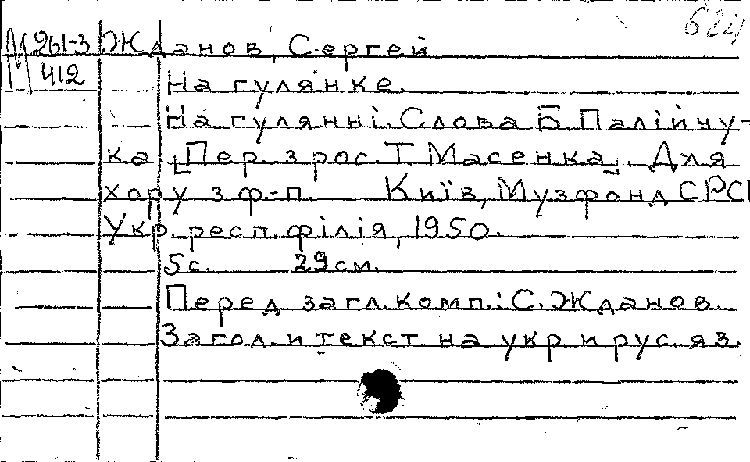 624
М 261-3 Жданов, Сергей
412 На гулянке.
На гулянні. Слова Б. Палійчу-
ка [Пер. з рос. Т. Масенка]. Для
хору з ф-п. Київ, Музфонд СРСР
Укр. респ. філія, 1950.
5с. 29см.
Перед загл. комп.: С. Жданов.
Загол. и текст на укр. и рус. яз.